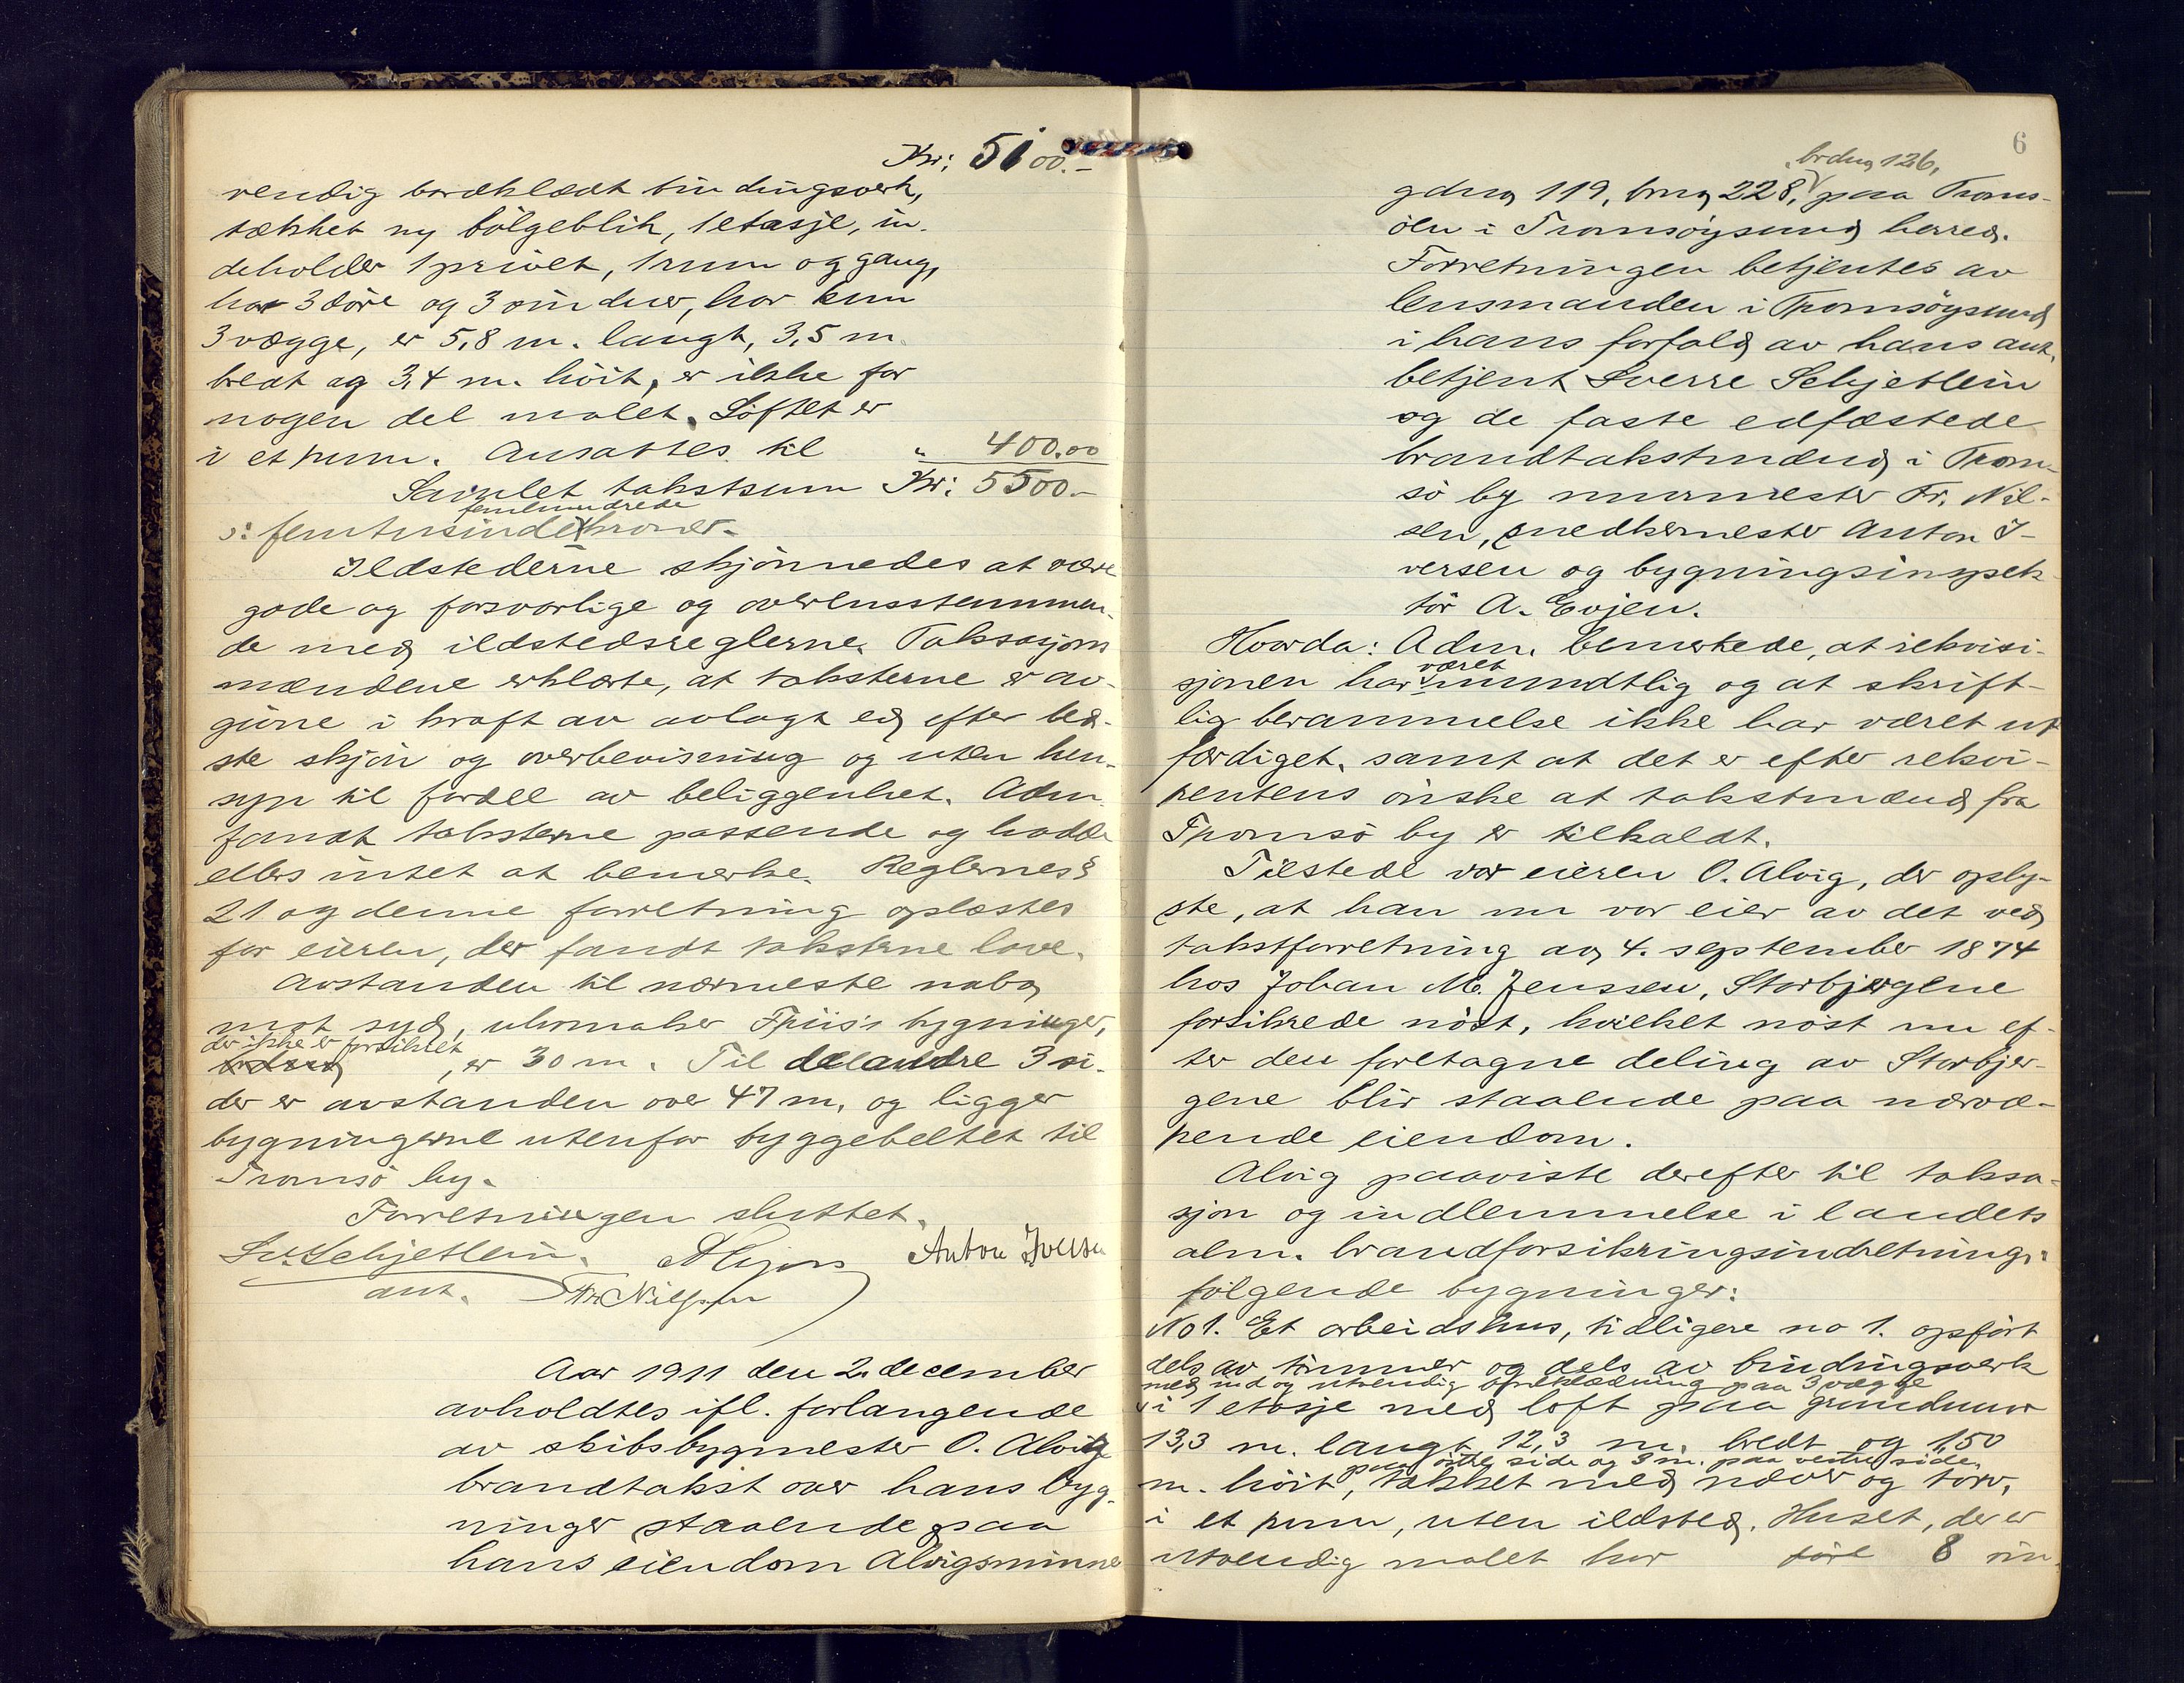 Kr: 5100.-
vendig bordklædt bindingsverk,
tækket ny bölgeblik, 1 etasje, in-
deholder 1 privet, 1 rum og gang,
har 3 döre og 3 vinduer, har kun
3 vægge, er 5,8 m. langt, 3,5 m.
bredt og 3,4 m. höit, er ikke for
nogen del malet. Löftet er
i et rum. Ansattes til " 400.00
Samlet takstsum Kr: 5500.-
femhundrede
ɔ: femtusinde kroner.-
Ildstederne skjönnedes at være
gode og forsvarlige og overensstemmen-
de med ildstedsreglerne. Taksasjons
mændene erklærte, at taksterne er av-
givne i kraft av avlagt ed efter bed-
ste skjön og overbevisning og uten hen-
syn til fordel av beliggenhet. Adm.
fandt taksterne passende og hadde
ellers intet at bemerke. Reglernes §
21 og denne forretning oplæstes
for eieren, der fandt taksterne lave.
Avstanden til nærmeste nabo,
mot syd, urmaker Friis's bygninger,
der ikke er forsikret
, er 30 m. Til de andre 3 si-
der er avstanden over 47 m. og ligger
bygningerne utenfor byggebeltet til
Tromsö by.
Forretningen sluttet.
Sv. Schjetlein. A Evjen Anton Iversen
ant. Fr. Nilssen
Aar 1911 den 2. december
avholdtes ifl. forlangende
av skibsbygmester O. Alvig
brandtakst over hans byg-
ninger staaende paa
hans eiendom Alvigsminne
6
brdno 126,
gdno 119, bno 228, paa Troms-
öen i Tromsöysund herred.
Forretningen betjentes av
lensmanden i Tromsöysund
i hans forfald av hans aut.
betjent Sverre Schjetlein
og de faste edfæstede
brandtakstmænd i Trom-
sö by murmester Fr. Nil-
sen, snedkermester Anton I-
versen og bygningsinspek-
tör A. Evjen.
Hvorda: Adm. bemerkede, at rekvisi-
været
sjonen har mundtlig og at skrift-
lig berammelse ikke har været ut
færdiget, samt at det er efter rekvi-
rentens önske at takstmænd fra
Tromsö by er tilkaldt.
Tilstede var eieren O. Alvig, der oply-
ste, at han nu var eier av det ved
takstforretning av 4. september 1874
hos Johan M. Jenssen, Storbjergene
forsikrede nöst, hvilket nöst nu ef-
ter den foretagne deling av Storbjer-
gene blir staaende paa nærvæ-
rende eiendom.
Alvig paaviste derefter til taksa-
sjon og indlemmelse i landets
alm. brandforsikringsindretning:
fölgende bygninger:
No 1. Et arbeidshus, tidligere no 1. opfört
dels av tömmer og dels av bindingsverk
med ind og utvendig bordklædning paa 3 vægge
i 1 etasje med loft paa grundmur
13,3 m. langt, 12,3 m. bredt og 1,50
paa östre side og 3 m. paa vestre side,
m. höit, tækket med næver og torv,
i et rum, uten ildsted. Huset, der er
utvendig malet har döre 8 vin-